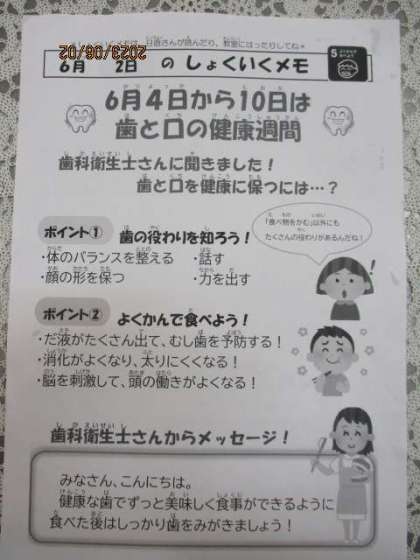 メモは、日直さんが読んだり、教室にはったりしてね。
2023/06/02
6月 2日 の しょくいくメモ
6月4日から10日は
歯と口の健康週間
歯科衛生士さんに聞きました！
歯と口を健康に保つには…？
ポイント① 歯の役わりを知ろう！
「食べ物をかむ」以外にも
たくさんの役わりがあるんだね！
・体のバランスを整える ・話す
・顔の形を保つ ・力を出す
ポイント② よくかんで食べよう！
・だ液がたくさん出て、むし歯を予防する！
・消化がよくなり、太りにくくなる！
・脳を刺激して、頭の働きがよくなる！
歯科衛生士さんからメッセージ！
みなさん、こんにちは。
健康な歯でずっと美味しく食事ができるように
食べた後はしっかり歯をみがきましょう！